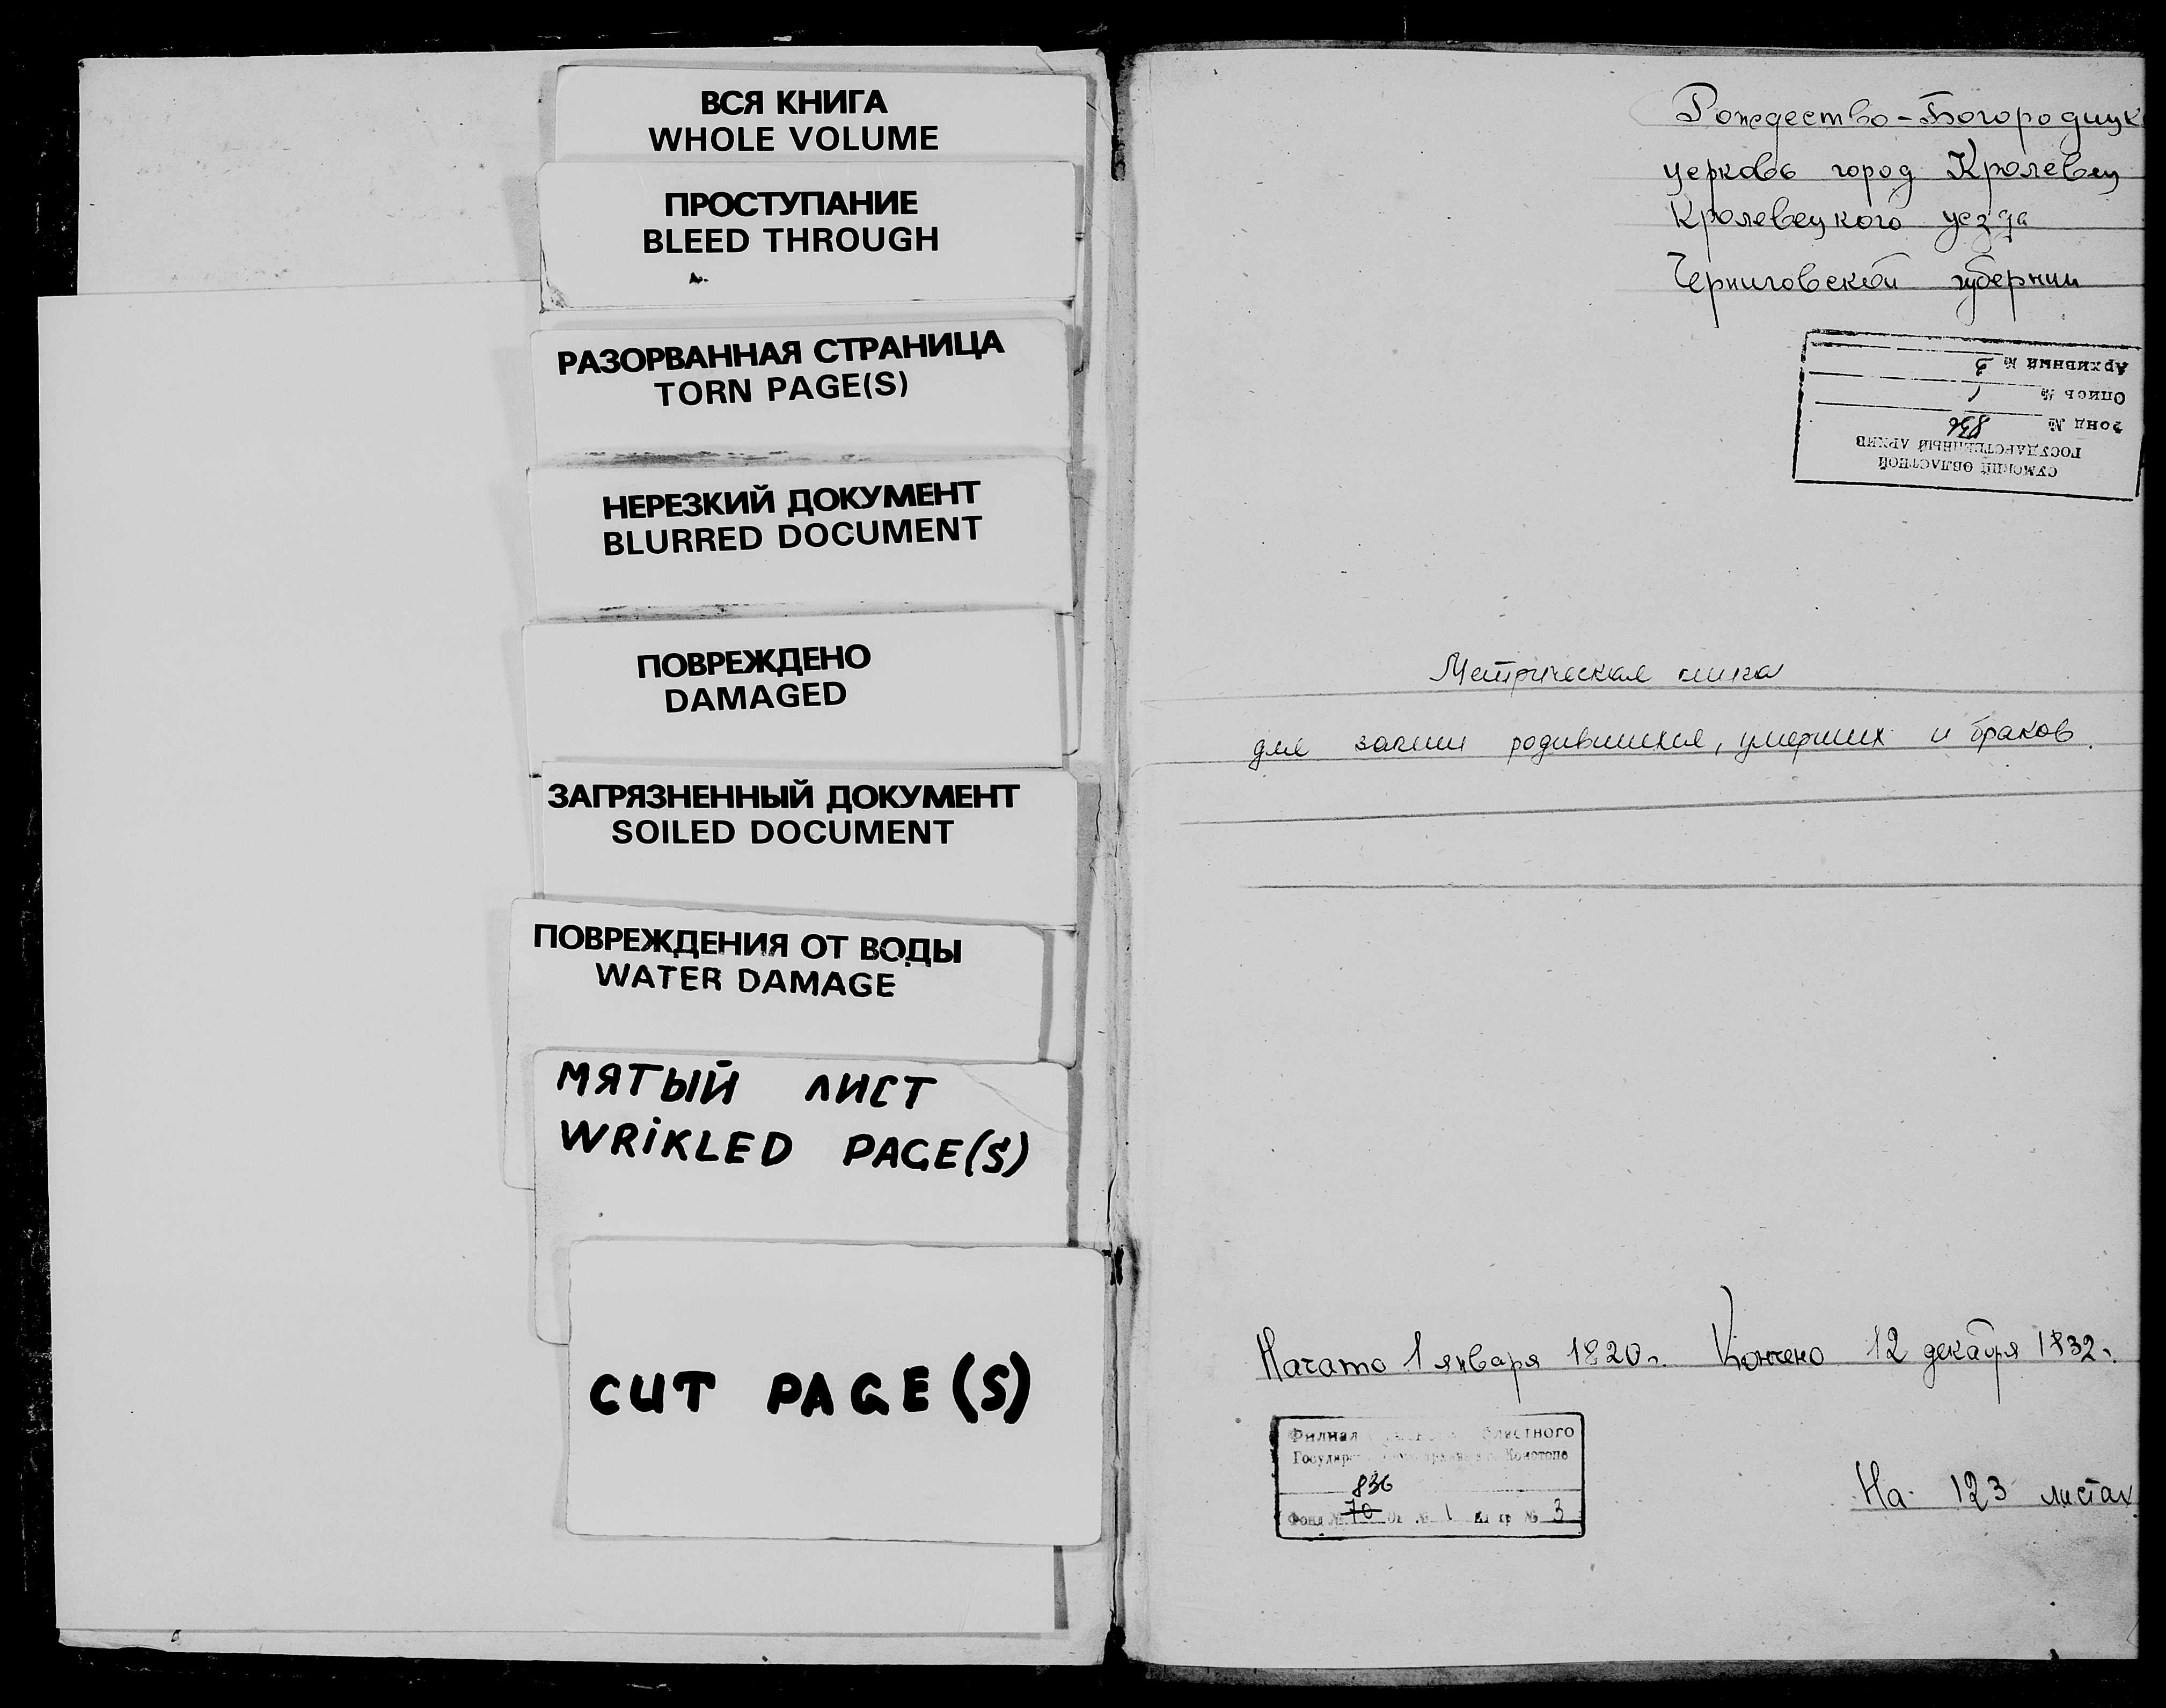 ВСЯ КНИГА
WHOLE VOLUME
ПРОСТУПАНИЕ
BLEED THROUGH
РАЗОРВАННАЯ СТРАНИЦА
TORN PAGE(S)
НЕРЕЗКИЙ ДОКУМЕНТ
BLURRED DOCUMENT
ПОВРЕЖДЕНО
DAMAGED
ЗАГРЯЗНЕННЫЙ ДОКУМЕНТ
SOILED DOCUMENT
ПОВРЕЖДЕНИЯ ОТ ВОДЫ
WATER DAMAGE
МЯТЫЙ ЛИСТ
WRIKLED PAGE(S)
CUT PAGE(S)
Рождество-Богородицк
церковь город Кролевец
Кролевецкого уезда
Черниговской губернии
СУМСКИЙ ОБЛАСТНОЙ
ГОСУДАРСТВЕННЫЙ АРХИВ
Фонд № 836
Опись № 1
Архивный № 3
Метрическая книга
для записи родившихся, умерших и браков.
Начато 1 января 1820 г. Кончено 12 декабря 1832 г.
Филиал
Конотопе
836
Фонд № 70 Оп № 1 Ед хр № 3
На 123 листах